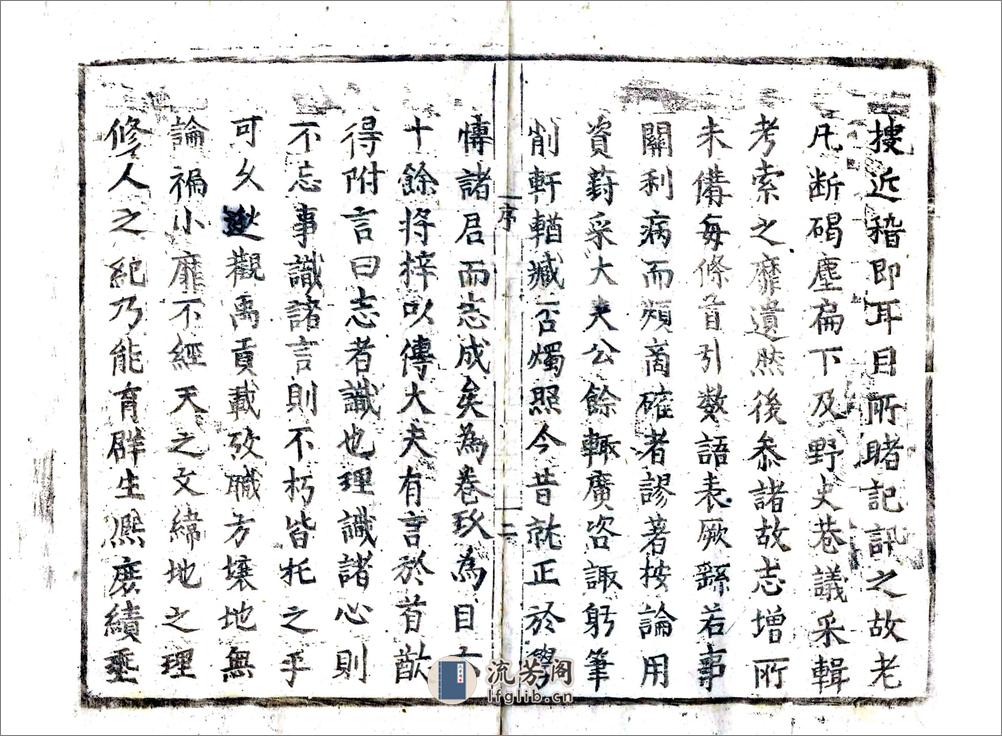 搜近稽即耳目所睹記訊之故老
凡断碣塵扁下及野史巷議采輯
考索之靡遺然後叅諸故志增所
未備每條首引数語表厥繇若事
關利病而頰啇確者謬著桉論用
資葑采大夫公餘輙廣咨諏躬筆
削軒輶臧否燭照今昔就正於學
博諸君而志成矣為卷玖為目六
十餘将梓以傳大夫有言於首猷
得附言曰志者識也理識諸心則
不忘事識諸言則不朽皆托之乎
可久逖觀禹貢載攷職方壤地無
論褊小靡不經天之文緯地之理
修人之紀乃能育群生熈庶績垂
序
二
流芳阁
lfglib.cn